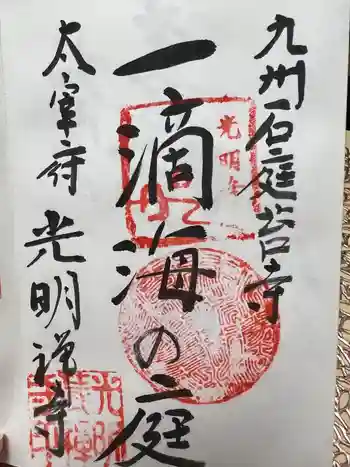 九州石庭苔寺
一滴海の庭
太宰府
光明禅寺
光明